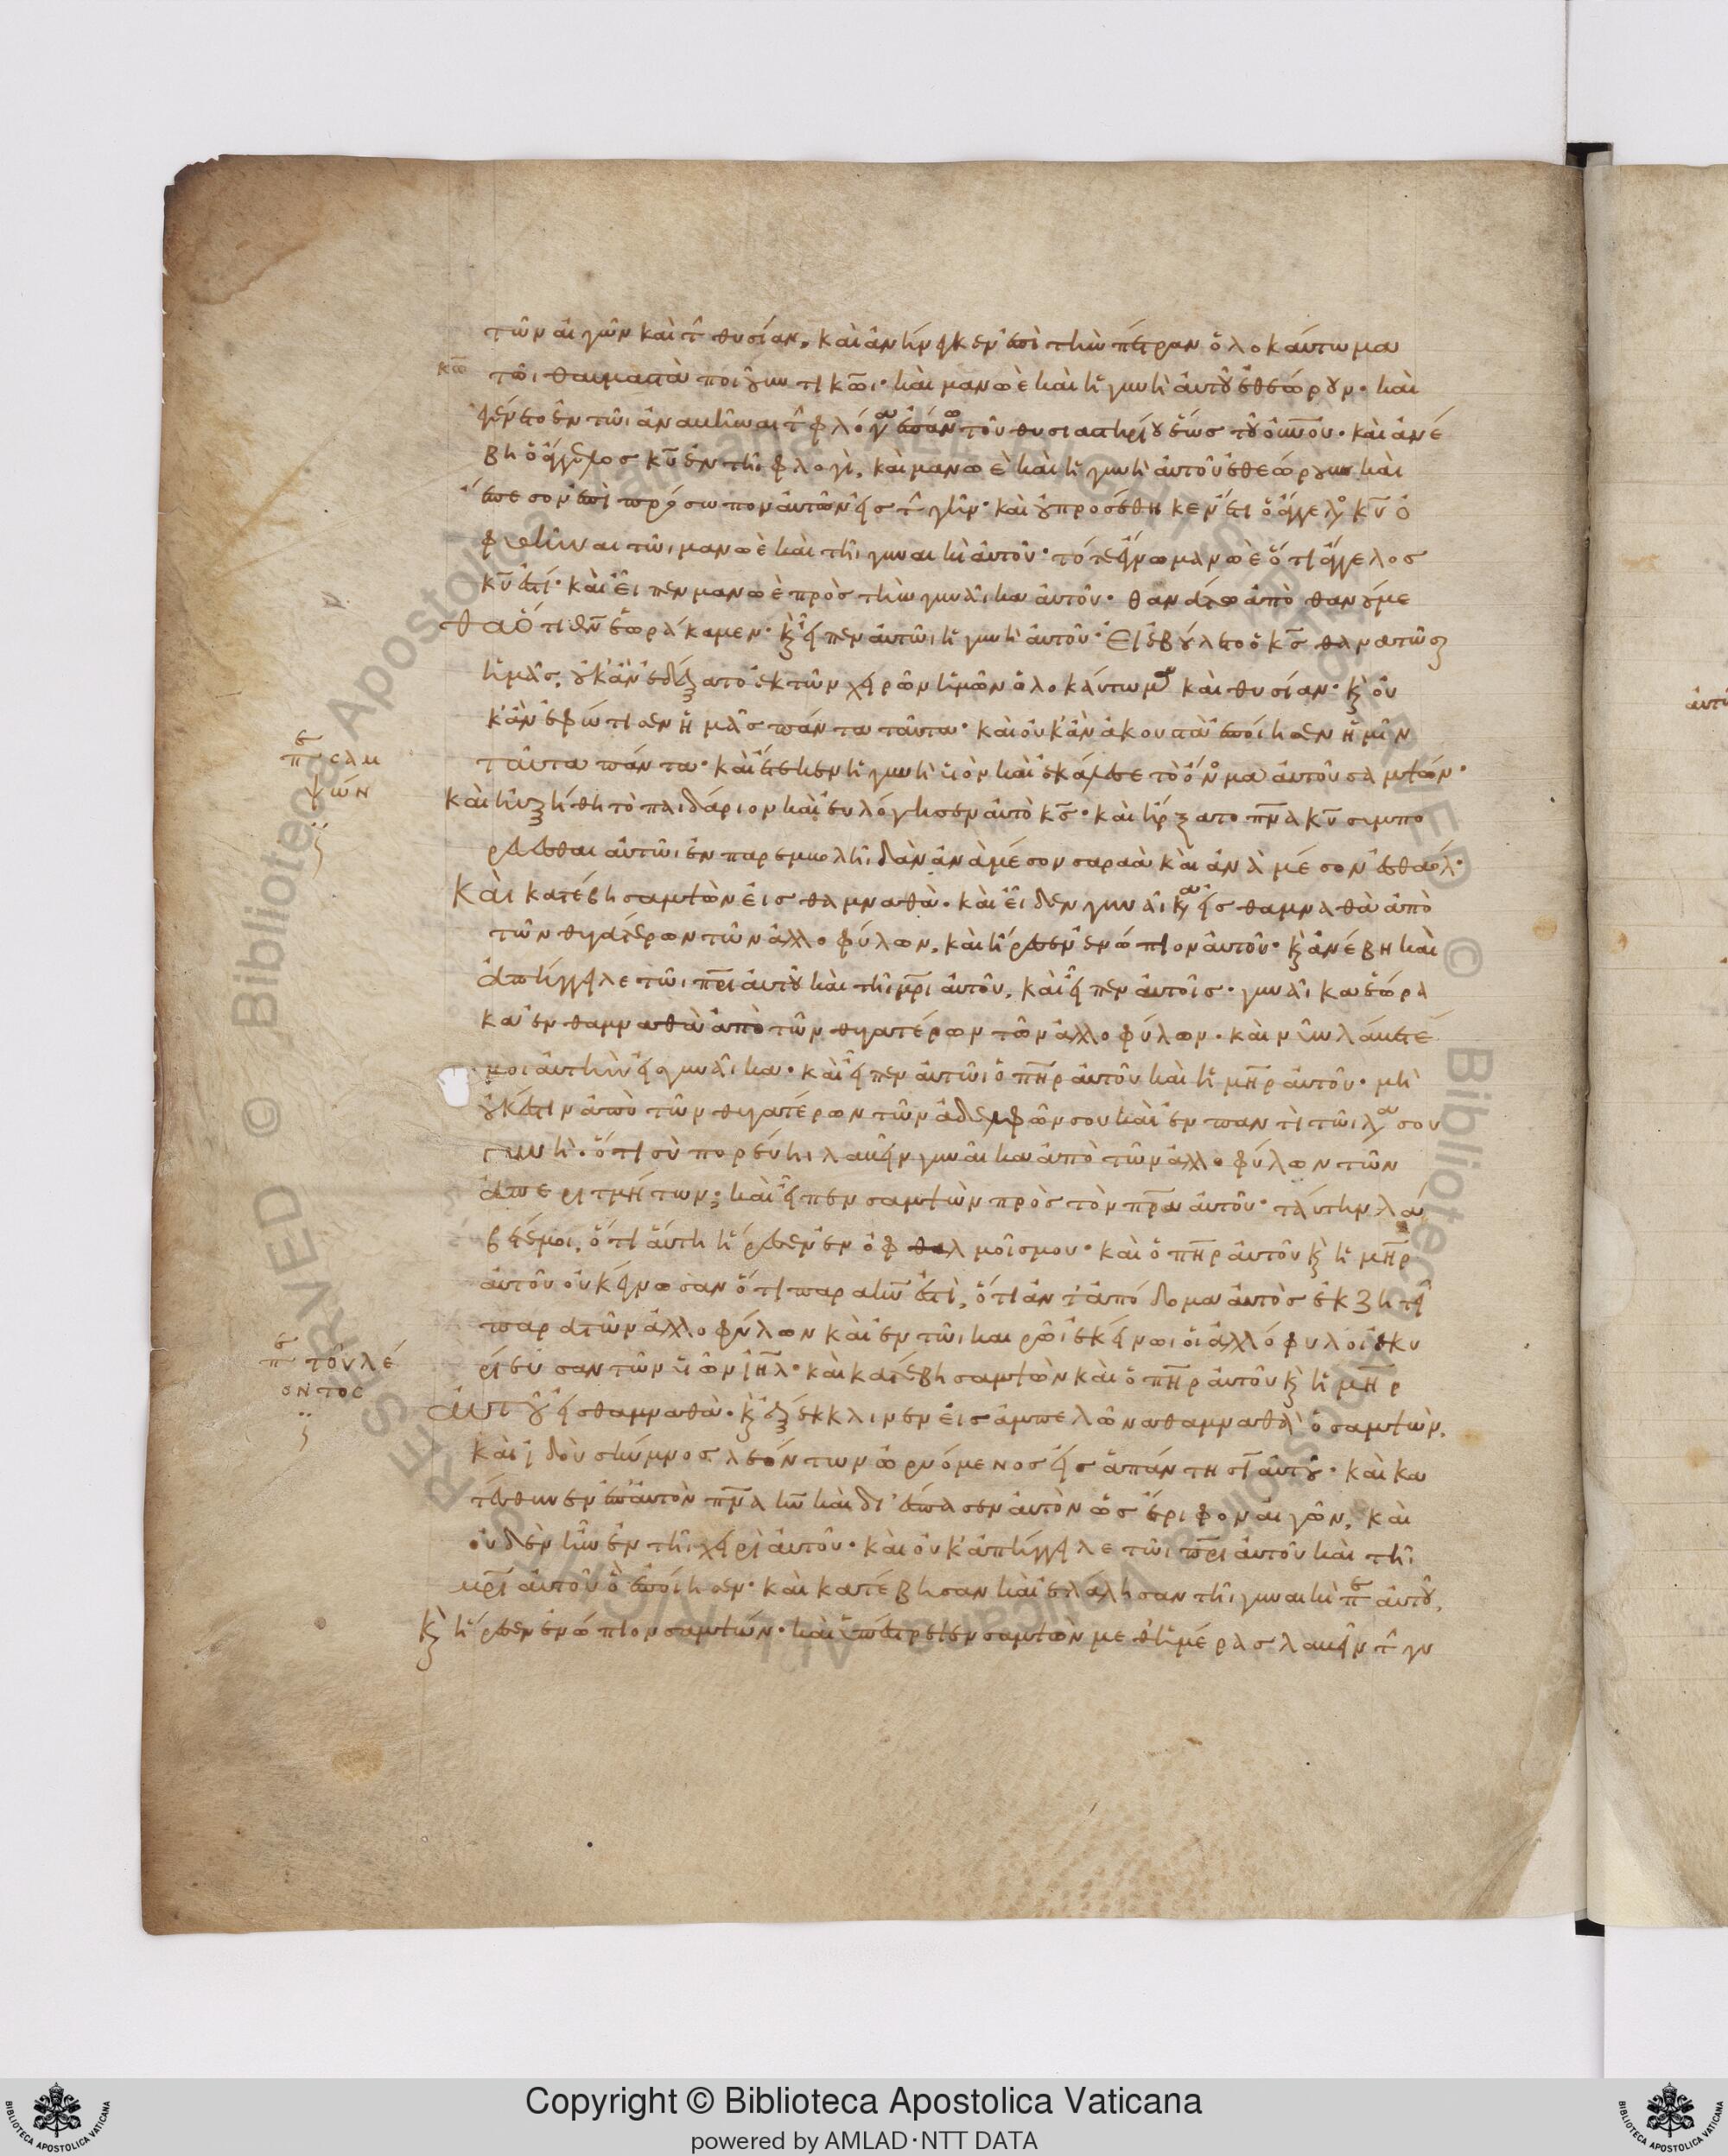 τῶν αἰγῶν καὶ τ̂ θυσίαν. καὶ ἀνήνεγκεν ἐπὶ τὴν πέτραν ὁλοκαύτωμα
κω̅
τῶι θαυμαστὰ ποιοῦντι κω̅ι· καὶ μανωὲ καὶ ἡ γυνὴ αὐτοῦ ἐθεώρουν· καὶ
ἐγένετο ἐν τῶι ἀναβῆναι τ̂ φλόγα ἐπάνω τοῦ θυσιαστηρίου ἕως τοῦ οὐν̅οῦ· καὶ ἀνέ
βη ὁ ἄγγελος κυ̅ ἐν τῆι φλογὶ, καὶ μανωὲ καὶ ἡ γυνὴ αὐτοῦ ἐθεώρουν καὶ
ἔπεσον ἐπὶ πρόσωπον αὐτῶν εἰς τ̂ γῆν· καὶ οὐ προσέθηκεν ἔτι ὁ ἄγγελος κυ̅ ὀ
φθῆναι τῶι μανωὲ καὶ τῆι γυναικὶ αὐτοῦ· τότε ἔγνω μανωὲ ὅτι ἄγγελος
κυ̅ ἐστί· καὶ εἶπεν μανωὲ πρὸς τὴν γυναῖκα αὐτοῦ· θανάτω ἀποθανούμε
θα ὅτι θν̅ ἑωράκαμεν· κ̀ εἶπεν αὐτῶι ἡ γυνὴ αὐτοῦ· Εἰ ἐβούλετο ὁ κς̅ θανατῶσ
ἡμᾶς, οὐκ ἂν ἐδέξατο ἐκ τῶν χειρῶν ἡμῶν ὁλοκαύτωμα καὶ θυσίαν· κ̀ οὐ
κ ἂν ἐφώτισεν ἡμᾶς πάντα ταῦτα· καὶ οὐκ ἂν ἀκουστὰ ἐποίησεν ἡμῖν
π̅ε σαμ
ψών
ταῦτα πάντα· καὶ ἔτεκεν ἡ γυνὴ υἱὸν καὶ ἐκάλεσε τὸ ὄνομα αὐτοῦ σαμψών·
καὶ ηὐξήθη τὸ παιδάριον καὶ εὐλόγησεν αὐτὸ κς̅· καὶ ἤρξατο πν̅α κυ̅ συμπο
ρεύεσθαι αὐτῶι ἐν παρεμβολῆι δὰν ἀνὰ μέσον σαραὰ καὶ ἀνὰ μέσον ἐσθαόλ·
Καὶ κατέβη σαμψὼν εἰς θαμναθὰ· καὶ εἶδεν γυναῖκα εἰς θαμναθὰ ἀπὸ
τῶν θυγατέρων τῶν ἀλλοφύλων, καὶ ἤρεσεν ἐνώπιον αὐτοῦ· κ̀ ἀνέβη καὶ
ἀπήγγειλε τῶι πρ̅ι αὐτοῦ καὶ τῆι μρ̅ι αὐτοῦ, καὶ εἶπεν αὐτοῖς· γυναῖκα ἑώρα
κα ἐν θαμναθὰ ἀπὸ τῶν θυγατέρων τῶν ἀλλοφύλων· καὶ νῦν λάβετέ
μοι αὐτὴν εἰς γυναῖκα· καὶ εἶπεν αὐτῶι ὁ πη̅ρ αὐτοῦ καὶ ἡ μη̅ρ αὐτοῦ· μὴ
οὐκ ἔστιν ἀπὸ τῶν θυγατέρων τῶν ἀδελφῶν σου καὶ ἐν παντὶ τῶι λαῶ σου
γυνὴ· ὅτι σὺ πορεύηι λαβεῖν γυναῖκα ἀπὸ τῶν ἀλλοφύλων τῶν
ἀπεριτμήτων; καὶ εἶπεν σαμψὼν πρὸς τὸν πρ̅α αὐτοῦ· ταύτην λά
βέ μοι, ὅτι αὕτη ἤρεσεν ἐν ὀφθαλμοῖς μου· καὶ ὁ πη̅ρ αὐτοῦ κ̀ ἡ μη̅ρ
αὐτοῦ οὐκ ἔγνωσαν ὅτι παρὰ κυ̅ ἐστὶ, ὅτι ἀνταπόδομα αὐτὸς ἐκζητεῖ
παρὰ τῶν ἀλλοφύλων καὶ ἐν τῶι καιρῶι ἐκείνωι οἱ ἀλλόφυλοι ἐκυ
π̅ε τοῦ λέ
οντος
ρίευσαν τῶν υἱῶν ιη̅λ· καὶ κατέβη σαμψὼν καὶ ὁ πη̅ρ αὐτοῦ κ̀ ἡ μη̅ρ
αὐτοῦ εἰς θαμναθὰ· κ̀ ἐξέκκλινεν εἰς ἀμπελῶνα θαμναθὰ ὁ σαμψών.
καὶ ἰδοὺ σκύμνος λεόντων ὠρυόμενος εἰς ἀπάντησιν αὐτοῦ· καὶ κα
τεύθυνεν ἐπ' αὐτὸν πν̅α κυ̅ καὶ διέσπασεν αὐτὸν ὡς ἔριφον αἰγῶν, καὶ
οὐδὲν ἦν ἐν τῆι χειρὶ αὐτοῦ· καὶ οὐκ ἀπήγγειλε τῶι πρ̅ι αὐτοῦ καὶ τῆι
μρ̅ι αὐτοῦ ὃ ἐποίησεν· καὶ κατέβησαν καὶ ἐλάλησαν τῆι γυναικὶ π̅ε αὐτοῦ,
κ̀ ἤρεσεν ἐνώπιον σαμψών· καὶ ὑπέστρεψεν σαμψὼν μεθ' ἡμέρας λαβεῖν τ̂ γυ